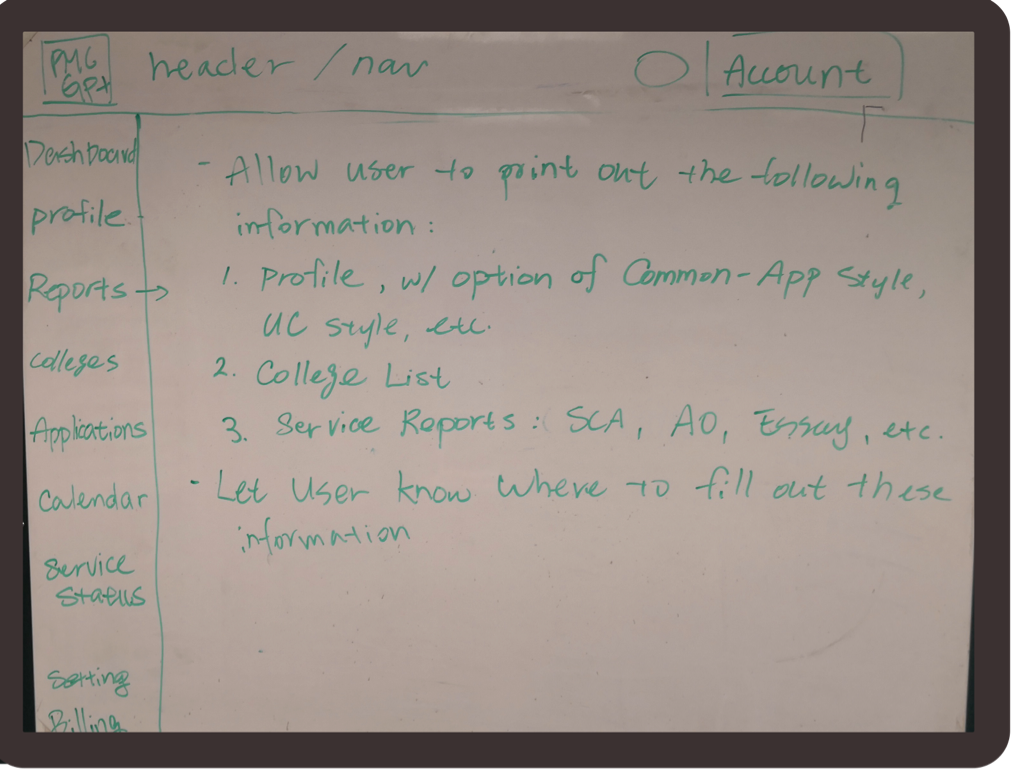 PMG
GPt
header / nav
Account
Dashboard
profile
Reports →
colleges
Applications
Calendar
Service
Status
Setting
Billing
- Allow user to print out the following
information :
1. Profile , w/ option of Common-App Style,
UC style, etc.
2. College List
3. Service Reports : SCA, AO, Essay, etc.
- Let User know Where to fill out these
information